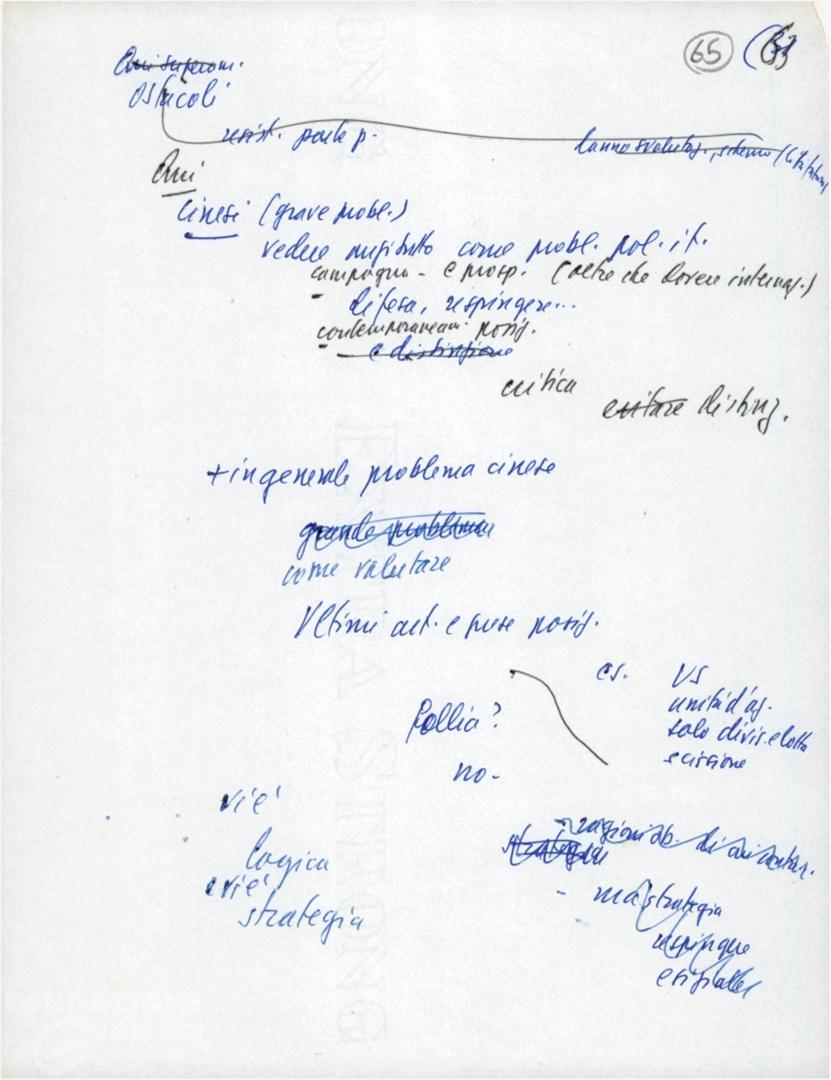 65 (63
Qui superam.
Ostacoli
resist. parte p.
Qui
Cinesi (grave probl.)
vedere anzitutto come probl. pol. it.
campagna - e prosp. (oltre che dovere internaz.)
difesa, respingere...
contemporaneam. posiz.
e distinzione
critica
evitare distinz.
+ in generale problema cinese
grande problema
come valutare
Ultimi att. e prese posiz.
es. VS
unità d'az.
solo divis. e lotta
scissione
Follia?
no-
v'è
logica
e v'è
strategia
strategia
- ma strategia
respingere